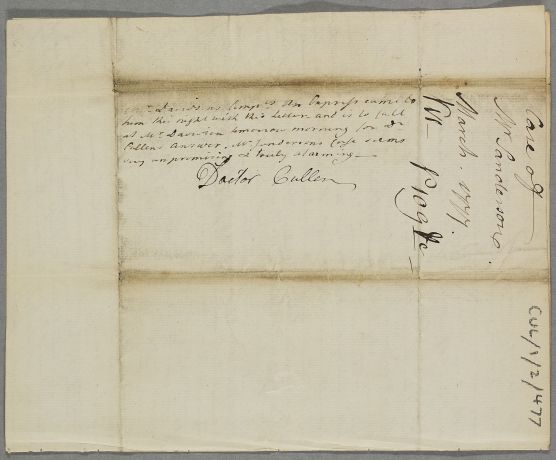 Mr Davidsons Compts An Express came to
him this night with this letter and is to call
at Mr Davidson tomorrow morning for Dr
Cullens Answer, Mr Sandersons Case seems
very unpromising & truly alarming —
Doctor Cullen
Case of
Mr Sanderson's.
March. 1777.
V. P. 109 &c
CUL/1/2/477